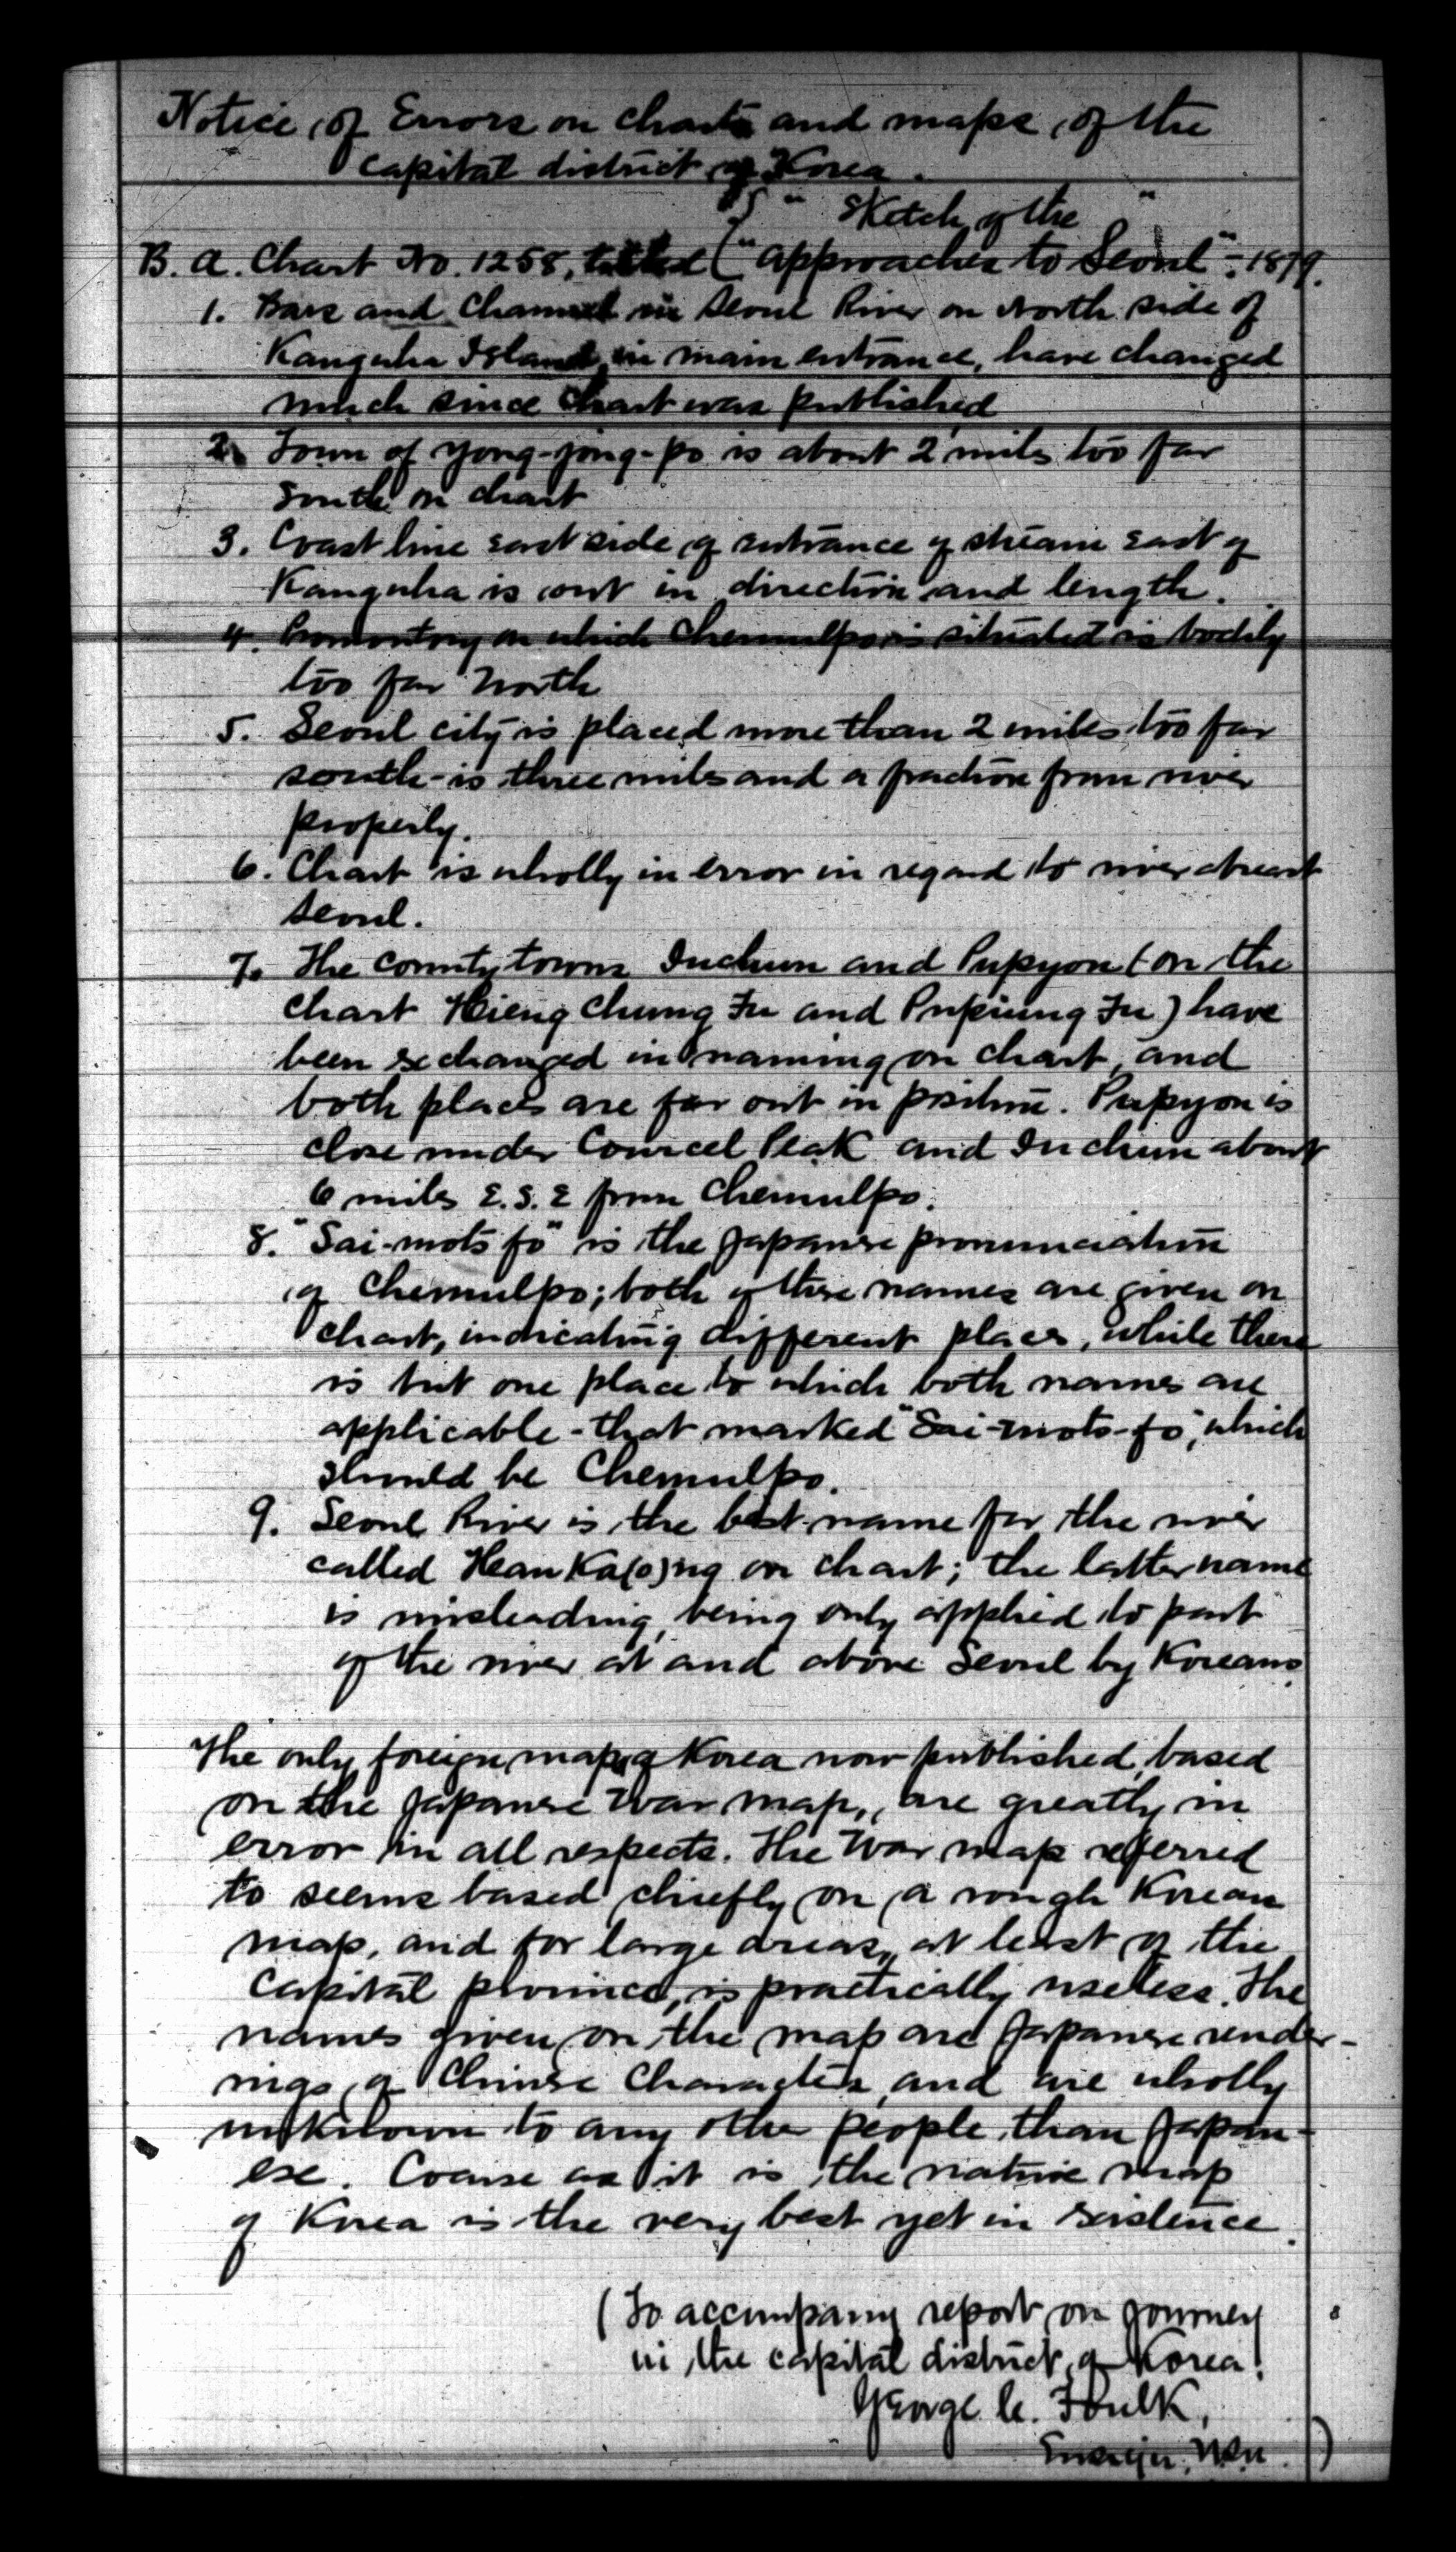 Notice of Errors on charts and maps of the
capital district of Korea.
" Sketch of the "
B. A. Chart No. 1258, titled ("Approaches to Seoul" - 1879.
1. Bars and Channel in Seoul River on North side of
Kangwha Island, in main entrance, have changed
much since chart was published
2. Town of Yong-jong-po is about 2 miles too far
south on chart
3. Coast line east side of entrance of stream east of
Kangwha is out in direction and length.
4. Promontory on which Chemulpo is situated is bodily
too far North
5. Seoul city is placed more than 2 miles too far
south - is three miles and a fraction from river
properly.
6. Chart is wholly in error in regard to river abreast
Seoul.
7. The county towns Inchun and Pupyon (on the
chart Hieng Chung Fu and Pupiung Fu) have
been exchanged in naming on chart, and
both places are far out in position. Pupyon is
close under Courcel Peak and Inchun about
6 miles E.S.E from Chemulpo.
8. "Sai-mots fo" is the Japanese pronunciation
of Chemulpo; both of these names are given on
chart, indicating different places, while there
is but one place to which both names are
applicable - that marked "Sai-mots-fo", which
should be Chemulpo.
9. Seoul River is the best name for the river
called Hean Ka(o)ng on chart; the latter name
is misleading, being only applied to part
of the river at and above Seoul by Koreans.
The only foreign maps of Korea now published, based
on the Japanese War map, are greatly in
error in all respects. The War map referred
to seems based chiefly on a rough Korean
map, and for large areas, at least of the
capital province, is practically useless. The
names given on the map are Japanese render-
ings of Chinese Characters, and are wholly
unknown to any other people than Japan-
ese. Coarse as it is the native map
of Korea is the very best yet in existence.
(To accompany report on journey
in the capital district of Korea.
George C. Foulk,
Ensign, U.S.N.)